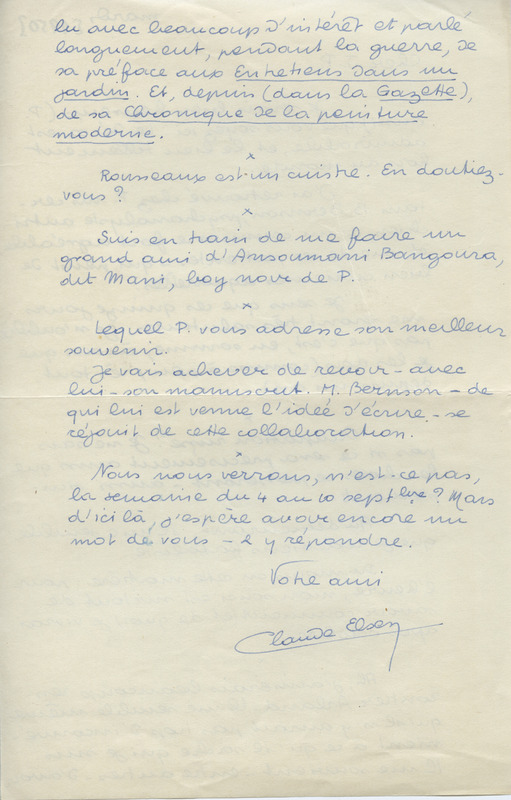 lu avec beaucoup d'intérêt et parlé
longuement, pendant la guerre, de
sa préface aux Entretiens dans un
jardin. Et, depuis (dans la Gazette),
de sa Chronique de la peinture
moderne.
x
Rousseaux est un cuistre. En doutiez-
vous ?
x
Suis en train de me faire un
grand ami d'Ansoumani Bangoura,
dit Mani, boy noir de P.
x
Lequel P. vous adresse son meilleur
souvenir.
Je vais achever de revoir - avec
lui - son manuscrit. M. Bernson - de
qui lui est venue l'idée d'écrire - se
réjouit de cette collaboration.
x
Nous nous verrons, n'est-ce pas,
la semaine du 4 au 10 septbre ? Mais
d'ici là, j'espère avoir encore un
mot de vous - & y répondre.
Votre ami
Claude Elsen